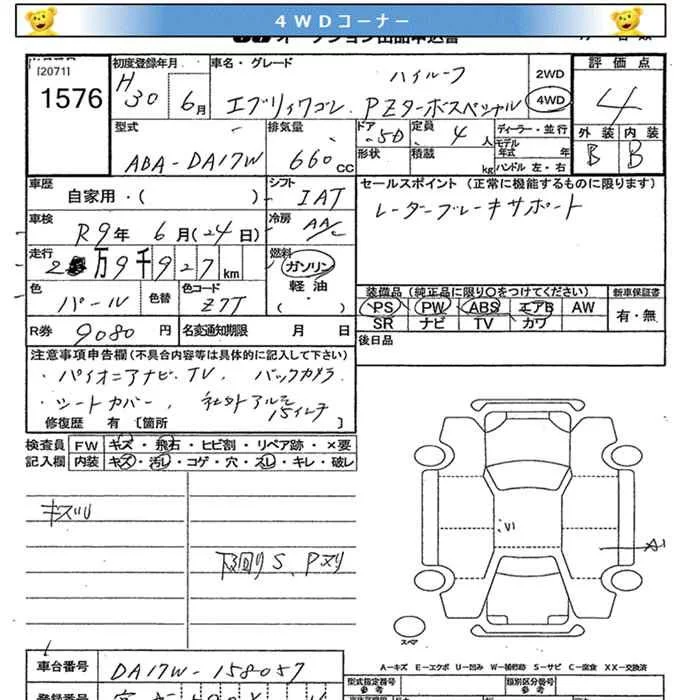 4WDコーナー
[2071]
1576
初度登録年月
H30 6月
車名・グレード
ハイルーフ
エブリィワゴン PZターボスペシャル
2WD
4WD
評価点
4
外装 内装
B B
型式
ABA-DA17W
排気量
660cc
ドア
5D
形状
定員
4人
積載
kg
ディーラー・並行
モデル年式 年
ハンドル 左・右
車歴
自家用・( )
シフト
IAT
セールスポイント (正常に機能するものに限ります)
レーダーブレーキサポート
車検
R9年 6月(24日)
冷房
AAC
走行
2万9千927km
燃料
ガソリン
軽油
( )
色
パール
色替
色コード
Z7T
装備品(純正品に限り〇をつけてください)
PS PW ABS エアB AW
SR ナビ TV カワ
新車保証書
有・無
R券 9080円
名変通知期限 月 日
後日品
注意事項申告欄(不具合内容等は具体的に記入して下さい)
・パイオニアナビ・TV、バックカメラ
・シートカバー、社外アルミ15インチ
修復歴 有 [箇所 ]
検査員 FW キズ・飛石・ヒビ割・リペア跡・×要
記入欄 内装 キズ・汚レ・コゲ・穴・スレ・キレ・破レ
キズU
下回りS、Pヌリ
U1
A1
スペア
A-キズ E-エクボ U-凹み W-補修跡 S-サビ C-腐食 XX-交換済
車台番号
DA17W-158057
型式指定番号
参考
類別区分番号
参考
登録番号